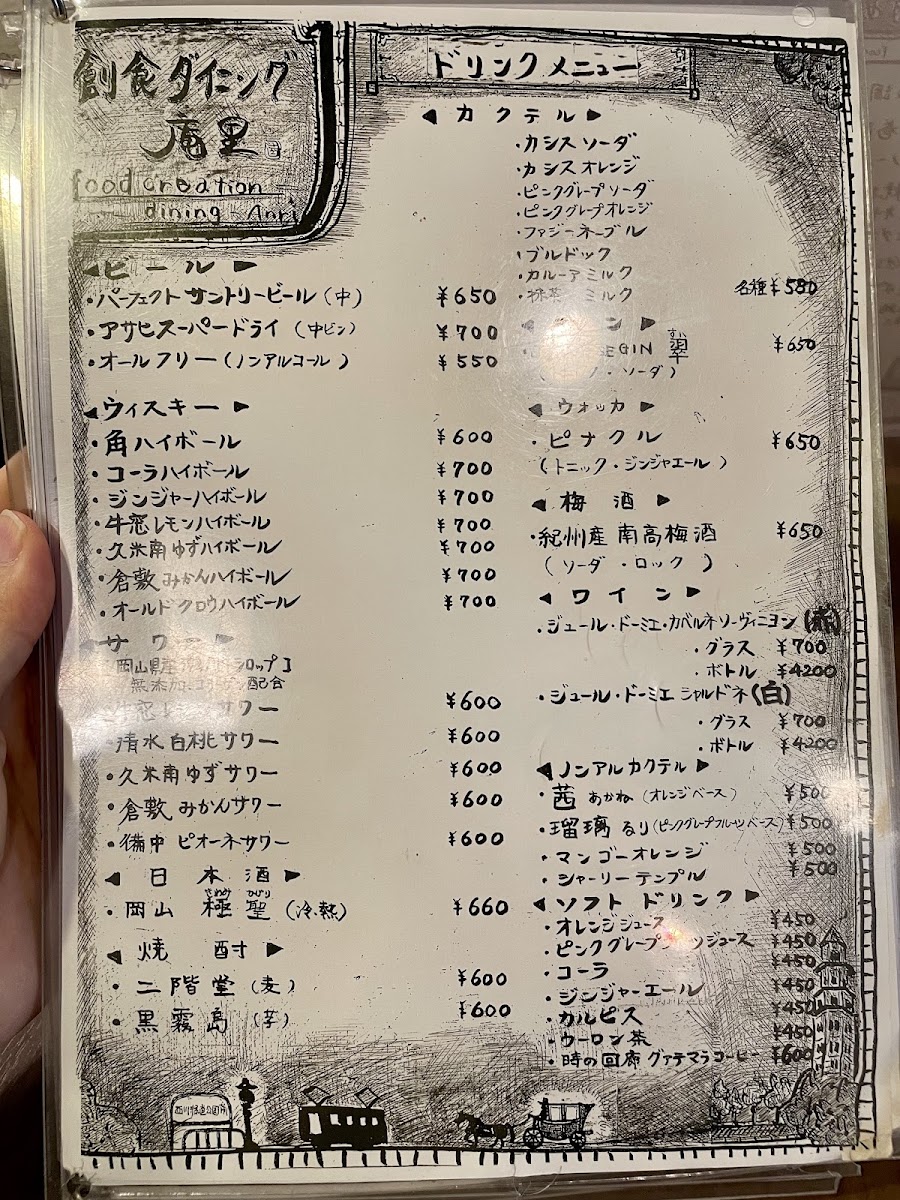 創食ダイニング
庵里
food creation
dining Anri
ドリンクメニュー
◀ ビール ▶
・パーフェクト サントリービール (中) ¥650
・アサヒスーパードライ (中ビン) ¥700
・オールフリー (ノンアルコール) ¥550
◀ ウィスキー ▶
・角ハイボール ¥600
・コーラハイボール ¥700
・ジンジャーハイボール ¥700
・牛窓レモンハイボール ¥700
・久米南ゆずハイボール ¥700
・倉敷みかんハイボール ¥700
・オールドクロウハイボール ¥700
◀ サワー ▶
岡山県産 シロップ
無添加 配合
牛窓レモンサワー ¥600
・清水白桃サワー ¥600
・久米南ゆずサワー ¥600
・倉敷みかんサワー ¥600
・備中 ピオーネサワー ¥600
◀ 日本酒 ▶
・岡山 極聖 (冷・熱) ¥660
きわみ ひじり
◀ 焼酎 ▶
・二階堂 (麦) ¥600
・黒霧島 (芋) ¥600
◀ カクテル ▶
・カシスソーダ
・カシスオレンジ
・ピンクグレープソーダ
・ピンクグレープオレンジ
・ファジーネーブル
・ブルドック
・カルーアミルク
・抹茶 ミルク 各種 ¥580
◀ ン ▶
EGIN 翠 ¥650
すい
・ソーダ)
◀ ウォッカ ▶
・ピナクル ¥650
(トニック・ジンジャエール)
◀ 梅酒 ▶
・紀州産 南高梅酒 ¥650
(ソーダ・ロック)
◀ ワイン ▶
・ジュール・ドーミエ・カベルネソーヴィニヨン (赤)
・グラス ¥700
・ボトル ¥4200
・ジュール・ドーミエ シャルドネ (白)
・グラス ¥700
・ボトル ¥4200
◀ ノンアルカクテル ▶
・茜 あかね (オレンジベース) ¥500
・瑠璃 るり (ピンクグレープフルーツベース) ¥500
・マンゴーオレンジ ¥500
・シャーリーテンプル ¥500
◀ ソフトドリンク ▶
・オレンジジュース ¥450
・ピンクグレープフルーツジュース ¥450
・コーラ ¥450
・ジンジャーエール ¥450
・カルピス ¥450
・ウーロン茶 ¥450
・時の回廊 グァテマラコーヒー ¥600
西川緑道公園